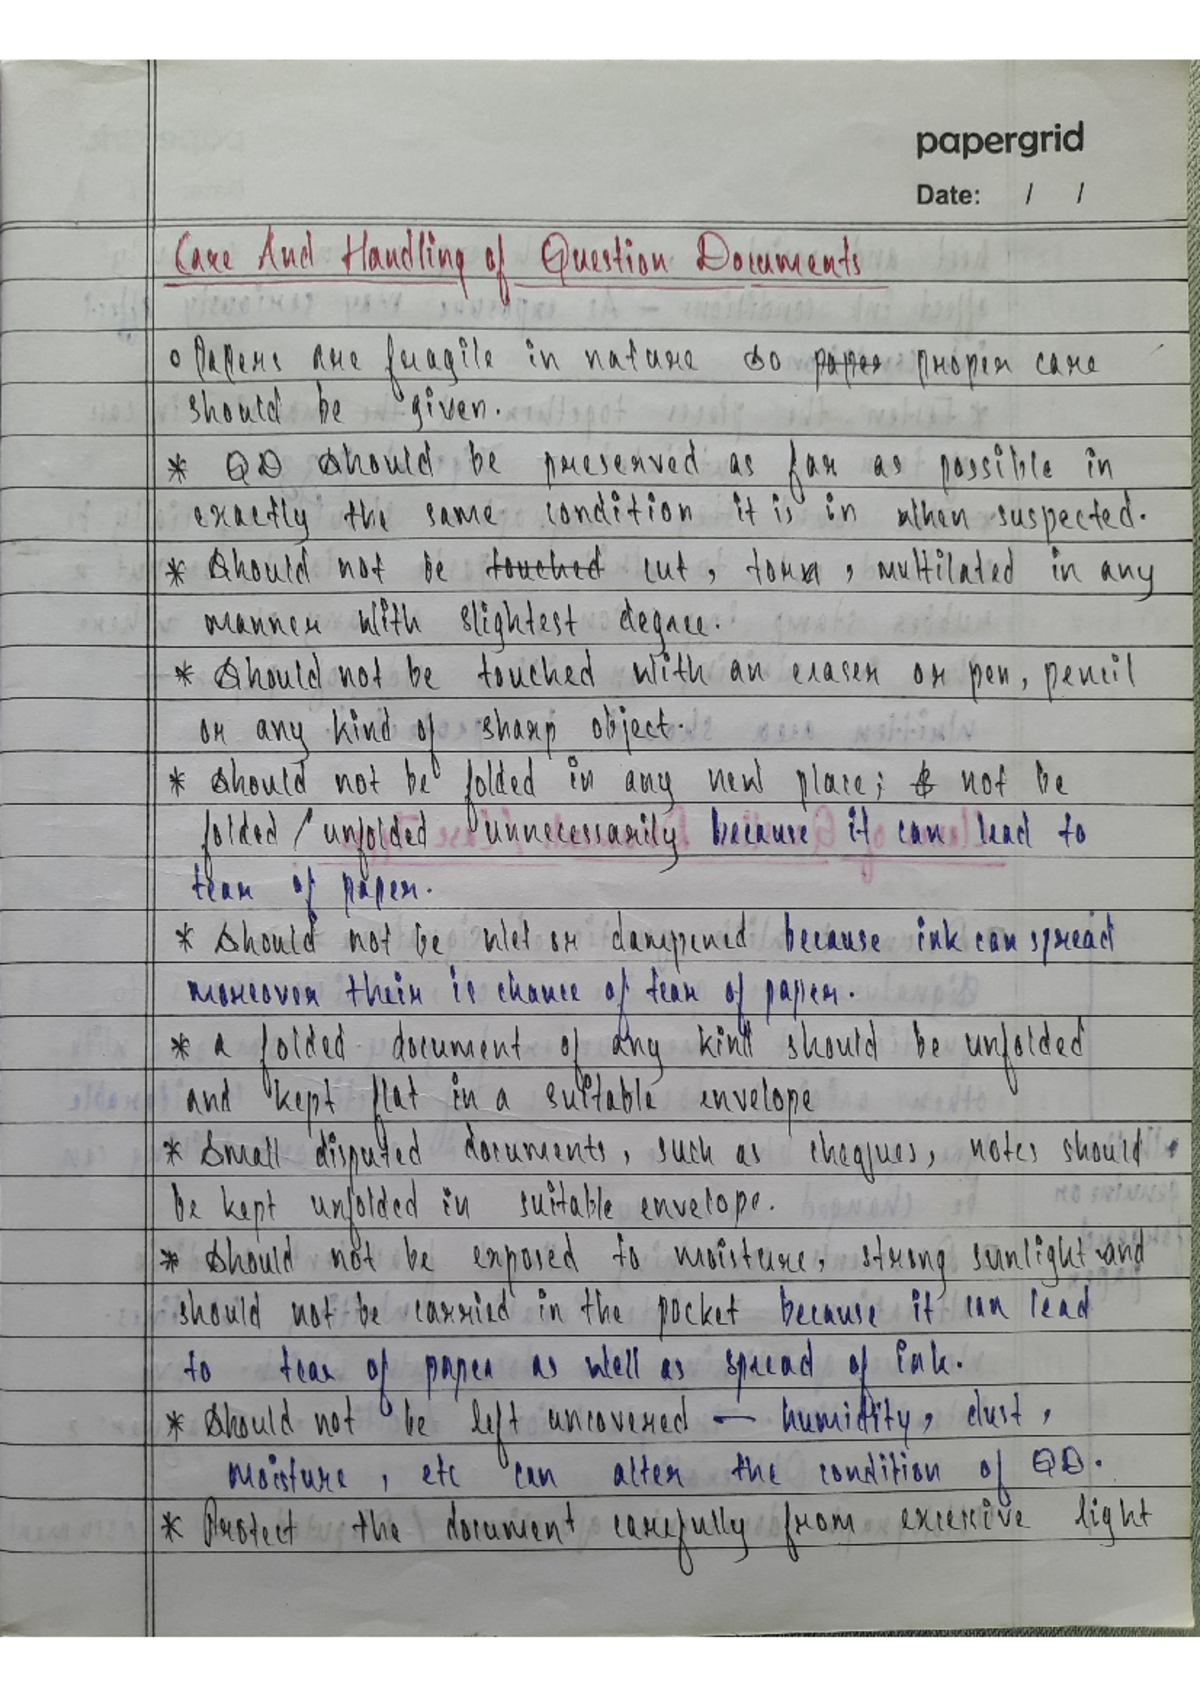 papergrid
Date: / /
Care And Handling of Question Documents
o Papers are fragile in nature so paper proper care
should be given.
* QD should be preserved as far as possible in
exactly the same condition it is in when suspected.
* Should not be touched cut, torn, multilated in any
manner with slightest degree.
* Should not be touched with an eraser or pen, pencil
or any kind of sharp object.
* Should not be folded in any new place; not be
folded / unfolded unnecessarily because it can lead to
tear of paper.
* Should not be wet or dampened because ink can spread
moreover their is chance of tear of paper.
* a folded document of any kind should be unfolded
and kept flat in a suitable envelope
* Small disputed documents, such as cheques, notes should
be kept unfolded in suitable envelope.
* Should not be exposed to moisture, strong sunlight and
should not be carried in the pocket because it can lead
to tear of paper as well as spread of ink.
* Should not be left uncovered — humidity, dust,
moisture, etc can alter the condition of QD.
* Protect the document carefully from excessive light